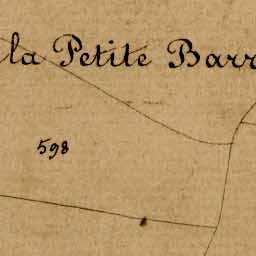 la Petite Barr
598